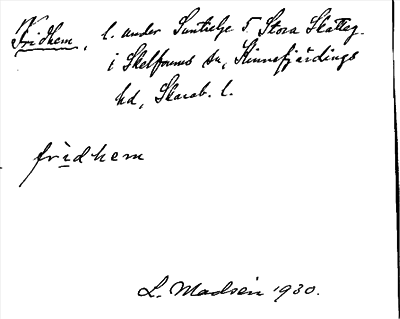 Fridhem, l. under Suntielge 5 Stora Skatteg.
i Skelfvums sn, Kinnefjärdings
hd, Skarab. l.
fridhem
L. Madsén 1930.